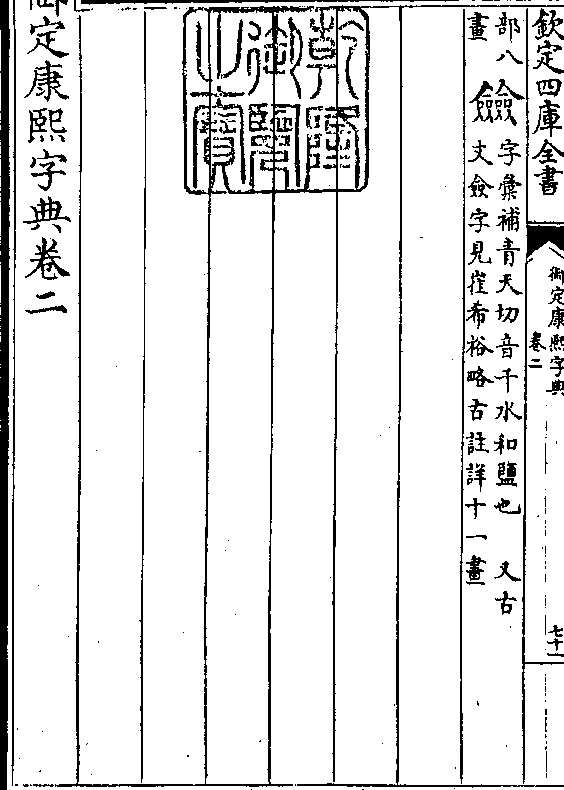 欽定四庫全書
御定康熙字典
卷二
七十一
部八
畫
字彙補青天切音千水和鹽也 又古
文僉字見崔希裕略古註詳十一畫
乾隆
御覽
之寶
御定康熙字典卷二